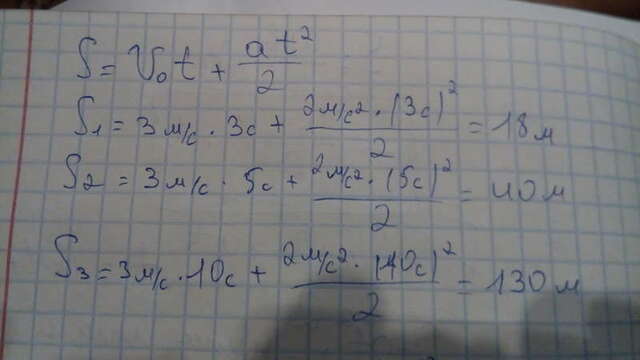 S = V₀t + at²/2
S₁ = 3м/с · 3с + 2м/с² · (3с)²/2 = 18м
S₂ = 3м/с · 5с + 2м/с² · (5с)²/2 = 40м
S₃ = 3м/с · 10с + 2м/с² · (10с)²/2 = 130м